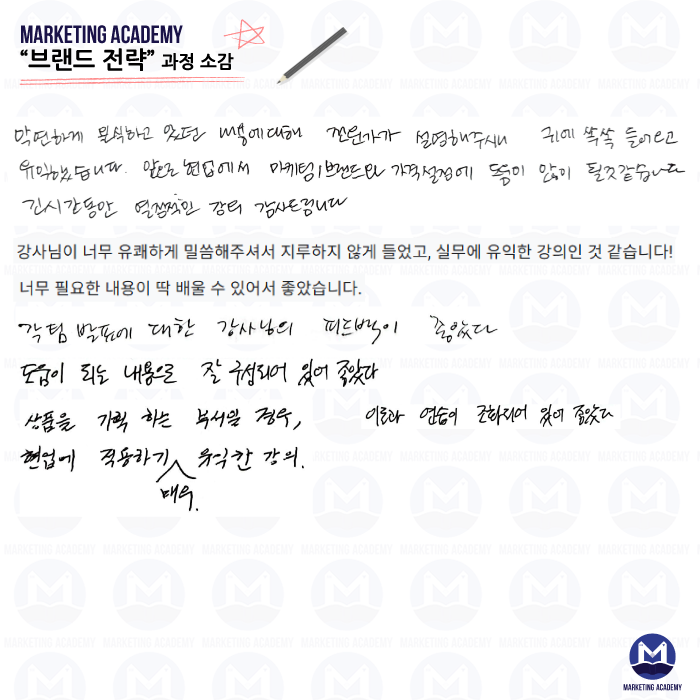 MARKETING ACADEMY
“브랜드 전략” 과정 소감
막연하게 인식하고 있던 내용에 대해 전문가가 설명해주시니 귀에 쏙쏙 들어오고
유익했습니다. 앞으로 현업에서 마케팅/브랜드와 가격설정에 도움이 많이 될것같습니다
긴시간동안 열정적인 강의 감사드립니다
강사님이 너무 유쾌하게 말씀해주셔서 지루하지 않게 들었고, 실무에 유익한 강의인 것 같습니다!
너무 필요한 내용이 딱 배울 수 있어서 좋았습니다.
각 팀 발표에 대한 강사님의 피드백이 좋았다
도움이 되는 내용으로 잘 구성되어 있어 좋았다
상품을 기획 하는 부서일 경우,
이론과 연습이 조화되어 있어 좋았다
현업에 적용하기 매우 유익한 강의.
MARKETING ACADEMY